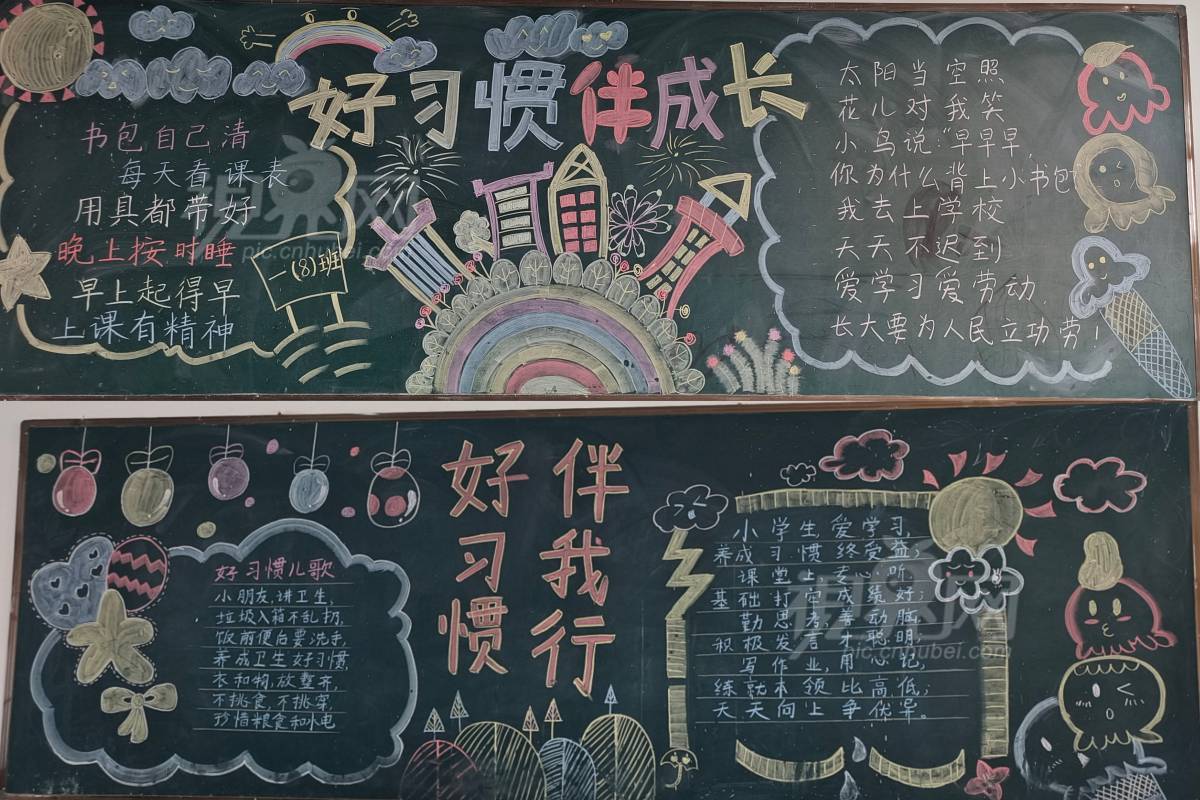 好习惯伴成长
书包自己清
每天看课表
用具都带好
晚上按时睡
早上起得早
上课有精神
一(8)班
太阳当空照
花儿对我笑
小鸟说“早早早
你为什么背上小书包
我去上学校
天天不迟到
爱学习爱劳动
长大要为人民立功劳!
好习惯
伴我行
好习惯儿歌
小朋友,讲卫生,
垃圾入箱不乱扔,
饭前便后要洗手,
养成卫生好习惯,
衣和物,放整齐,
不挑食,不挑菜,
珍惜粮食和水电
小学生,爱学习,
养成习惯终受益;
课堂上,专心听,
基础打实成绩好;
勤思考,善动脑,
积极发言才聪明;
写作业,用心记,
练就本领比高低;
天天向上争优异。
pic.cnhubei.com
pic.cnhubei.com